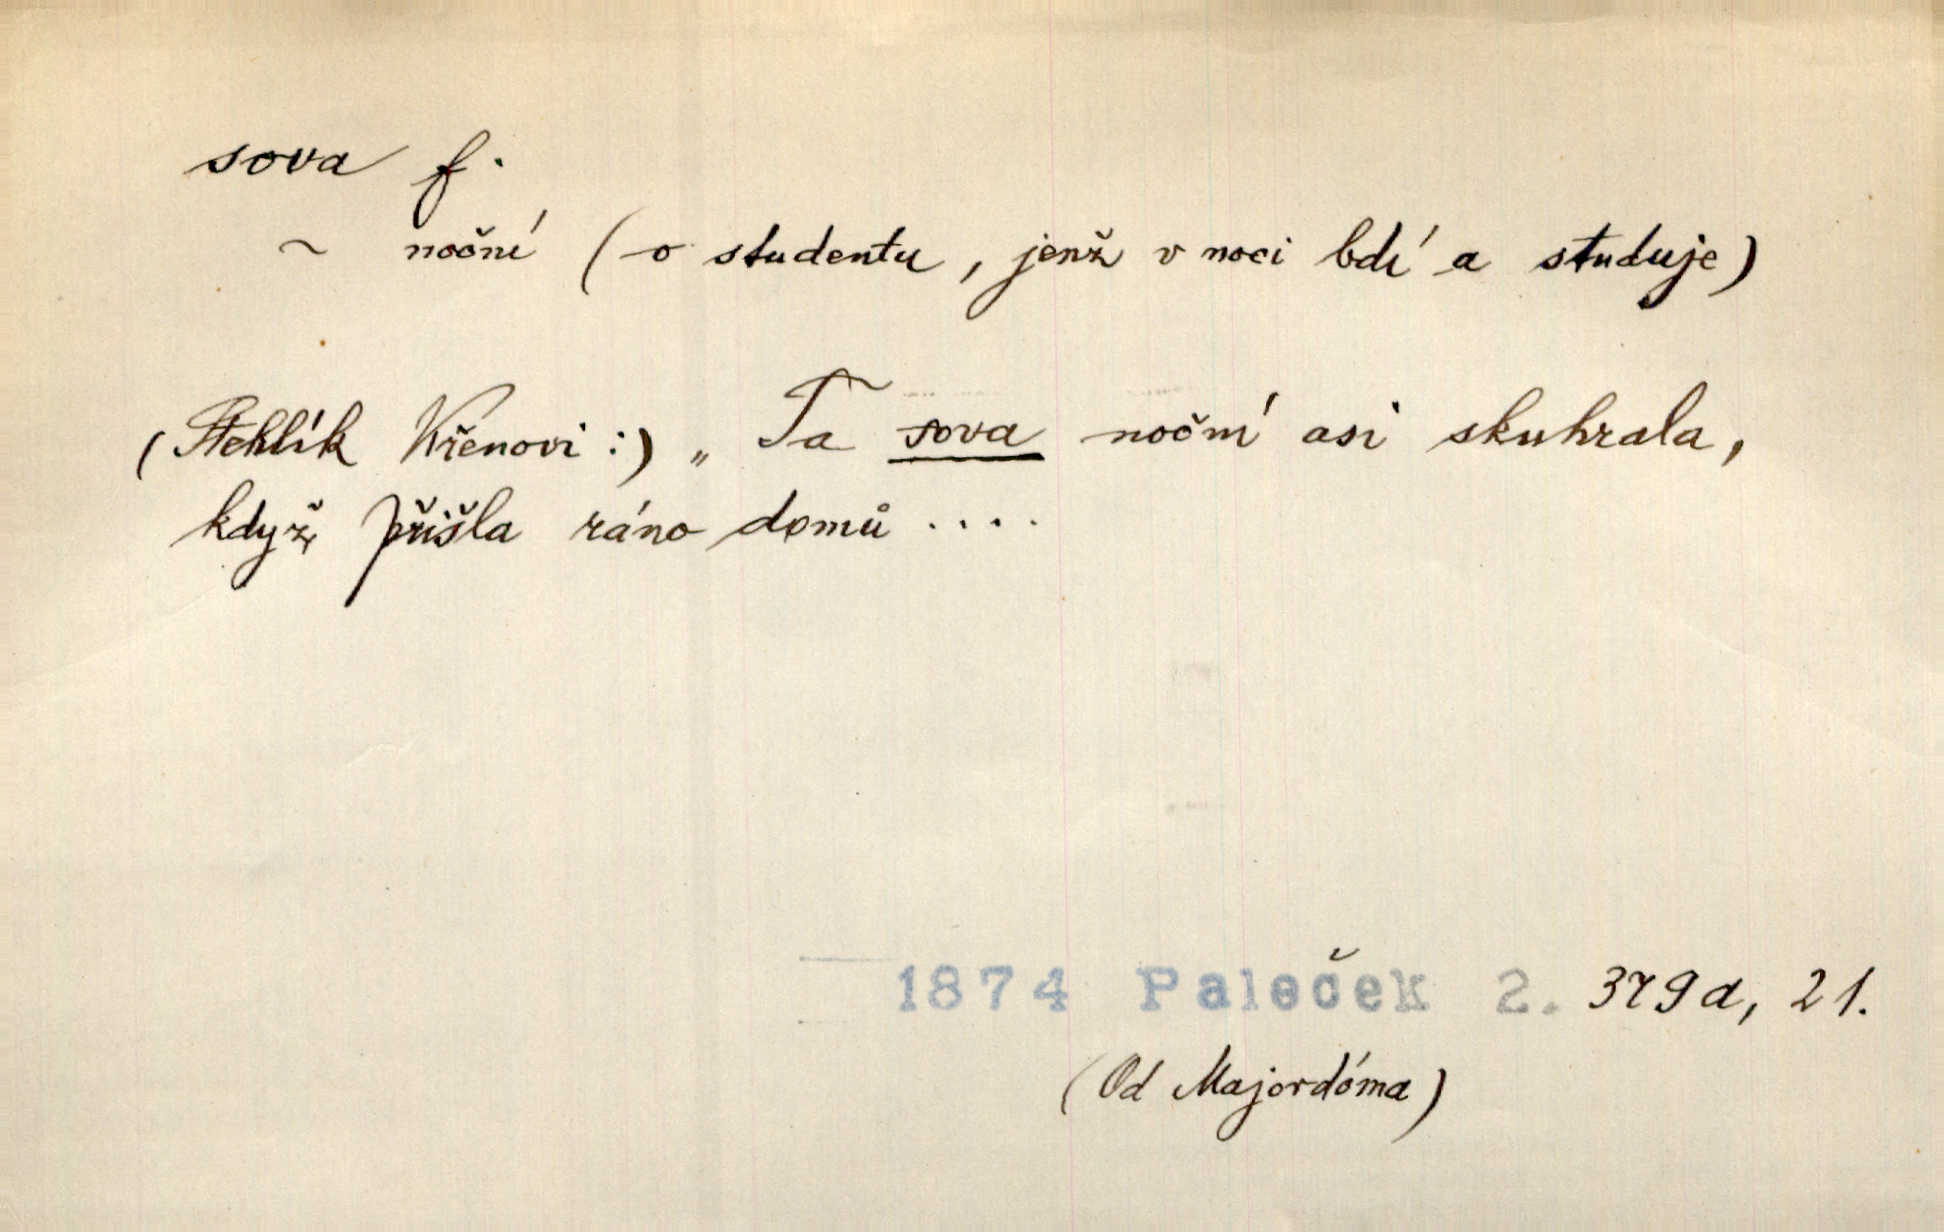 sova f.
~ noční (o studentu, jenž v noci bdí a studuje)
(Stehlík Křenovi:) „Ta sova noční asi skuhrala,
když přišla ráno domů ....
1874 Paleček 2. 379a, 21.
(Od Majordóma)